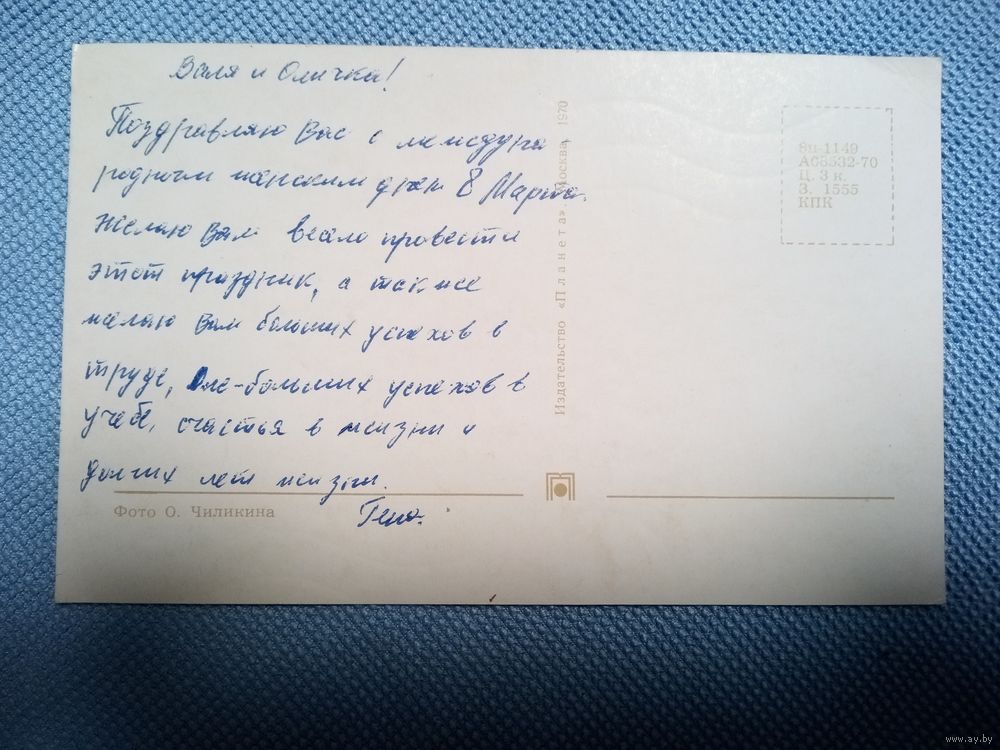 Валя и Оличка!
Поздравляю Вас с междуна
родным женским днем 8 Марта.
Желаю Вам весело провести
этот праздник, а также
желаю Вам больших успехов в
труде, Оле-больших успехов в
учебе, счастья в жизни и
долгих лет жизни.
Гена.
Фото О. Чиликина
Издательство «Планета». Москва, 1970
8п-1149
А68532-70
Ц. 3 к.
З. 1555
КПК
www.ay.by